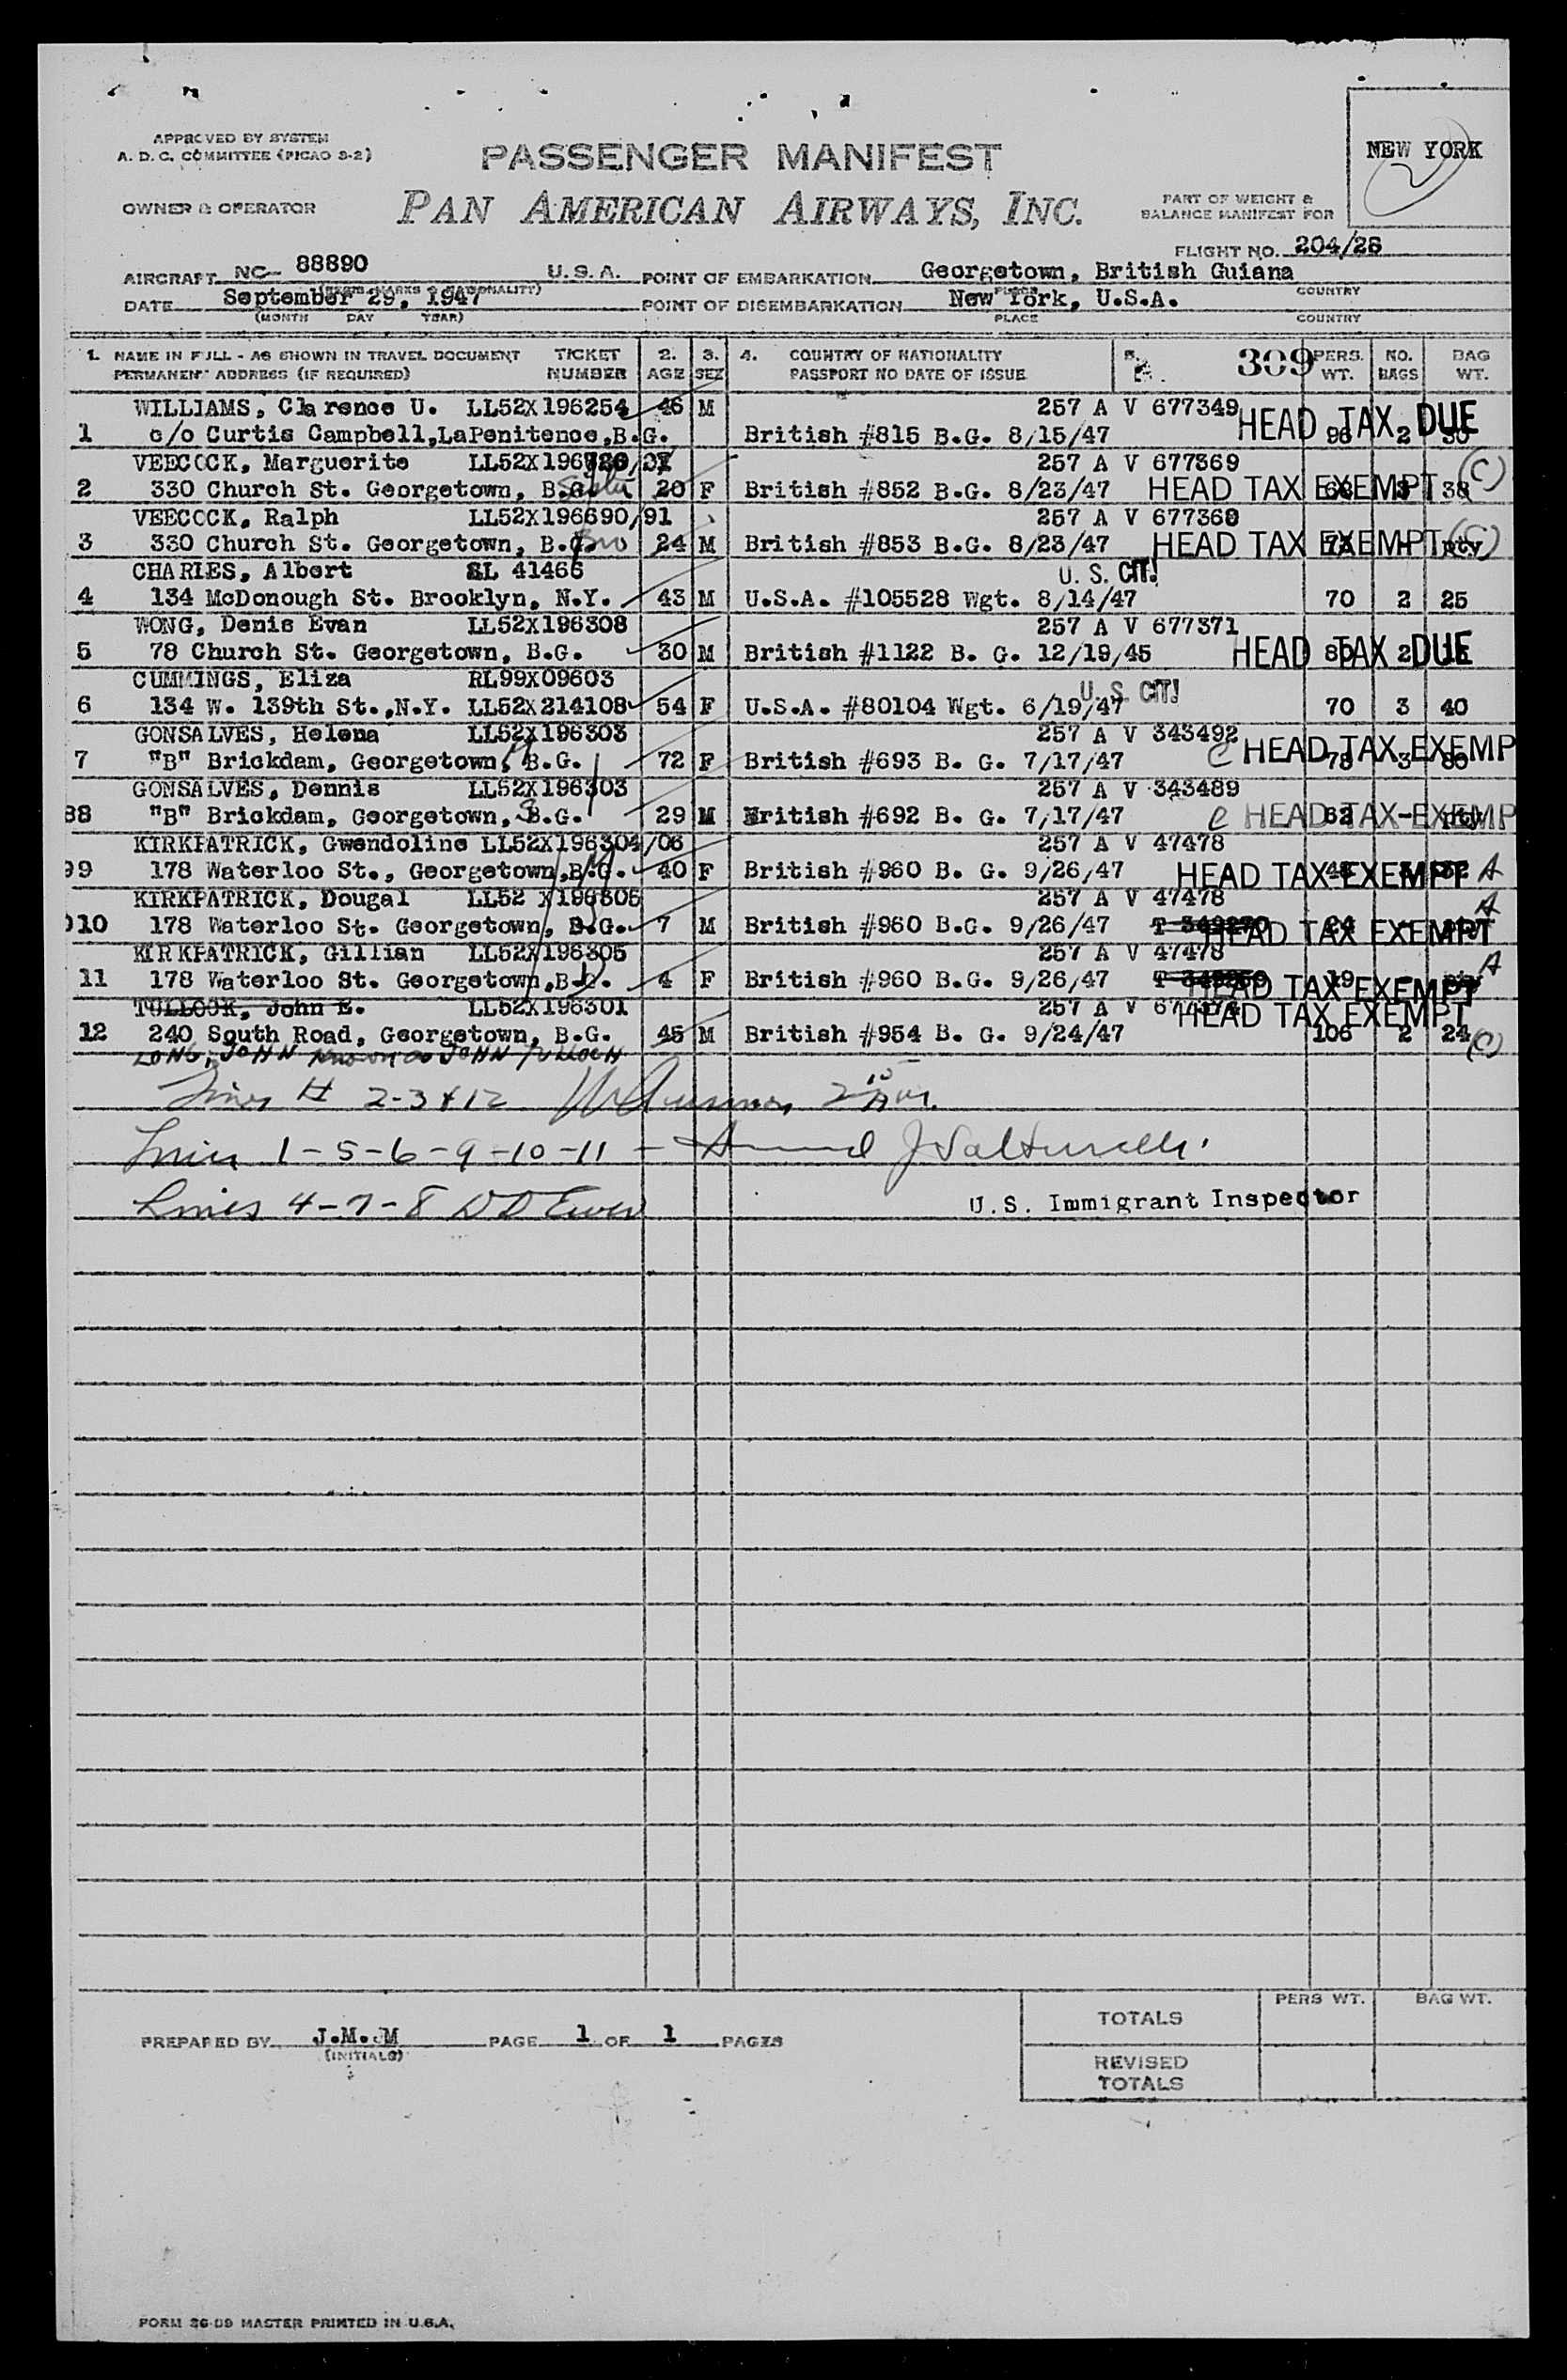 APPROVED BY SYSTEM
A. D. C. COMMITTEE (PICAO 3-2)
PASSENGER MANIFEST
NEW YORK
OWNER & OPERATOR
PAN AMERICAN AIRWAYS, INC.
PART OF WEIGHT &
BALANCE MANIFEST FOR
FLIGHT NO. 204/28
AIRCRAFT NC- 88890 U.S.A. POINT OF EMBARKATION Georgetown, British Guiana
PLACE COUNTRY
DATE September 29, 1947 POINT OF DISEMBARKATION New York, U.S.A.
(MONTH DAY YEAR) PLACE COUNTRY
1. NAME IN FULL - AS SHOWN IN TRAVEL DOCUMENT TICKET 2. 3. 4. COUNTRY OF NATIONALITY 5. 309 PERS. NO. BAG
PERMANENT ADDRESS (IF REQUIRED) NUMBER AGE SEX PASSPORT NO DATE OF ISSUE WT. BAGS WT.
WILLIAMS, Clarence U. LL52X196254 46 M 257 A V 677349 HEAD TAX DUE
1 c/o Curtis Campbell,LaPenitence,B.G. British #815 B.G. 8/15/47 2 30
VEECOCK, Marguerite 257 A V 677369
2 330 Church St. Georgetown, B.G. Sister 20 F British #852 B.G. 8/23/47 HEAD TAX EXEMPT 38 (C)
VEECOCK, Ralph LL52X196690/91 257 A V 677368
3 330 Church St. Georgetown, B.G. Bro 24 M British #853 B.G. 8/23/47 HEAD TAX EXEMPT pty (C)
CHARLES, Albert SL 41466 U. S. CIT!
4 134 McDonough St. Brooklyn, N.Y. 43 M U.S.A. #105528 Wgt. 8/14/47 70 2 25
WONG, Denis Evan LL52X196308 257 A V 677371
5 78 Church St. Georgetown, B.G. 30 M British #1122 B. G. 12/19/45 HEAD TAX DUE 80 2
CUMMINGS, Eliza RL99X09603 U. S. CIT!
6 134 W. 139th St.,N.Y. LL52X214108 54 F U.S.A. #80104 Wgt. 6/19/47 70 3 40
GONSALVES, Helena LL52X196303 257 A V 343492
7 "B" Brickdam, Georgetown, B.G. M 72 F British #693 B. G. 7/17/47 C HEAD TAX EXEMP 78 3 80
GONSALVES, Dennis LL52X196303 257 A V 343489
88 "B" Brickdam, Georgetown, B.G. S 29 M British #692 B. G. 7/17/47 C HEAD TAX EXEMP - pty
KIRKPATRICK, Gwendoline LL52X196304/06 257 A V 47478
99 178 Waterloo St., Georgetown,B.G. M 40 F British #960 B. G. 9/26/47 HEAD TAX EXEMPT A
KIRKPATRICK, Dougal LL52 X196305 257 A V 47478
10 178 Waterloo St. Georgetown, B.G. 7 M British #960 B.G. 9/26/47 HEAD TAX EXEMPT A
KIRKPATRICK, Gillian LL52X196305 257 A V 47478
11 178 Waterloo St. Georgetown,B.G. D 4 F British #960 B.G. 9/26/47 19 HEAD TAX EXEMPT A
TULLOCK, John E. LL52X196301 257 A V HEAD TAX EXEMPT
12 240 South Road, Georgetown, B.G. 45 M British #954 B. G. 9/24/47 106 2 24 (C)
LONG, JOHN known as JOHN TULLOCH
Lines # 2-3 & 12
Lines 1-5-6-9-10-11 -
Lines 4-7-8
U.S. Immigrant Inspector
PERS WT. BAG WT.
TOTALS
PREPARED BY J.M.M PAGE 1 OF 1 PAGES
(INITIALS)
REVISED
TOTALS
FORM 36-09 MASTER PRINTED IN U.S.A.